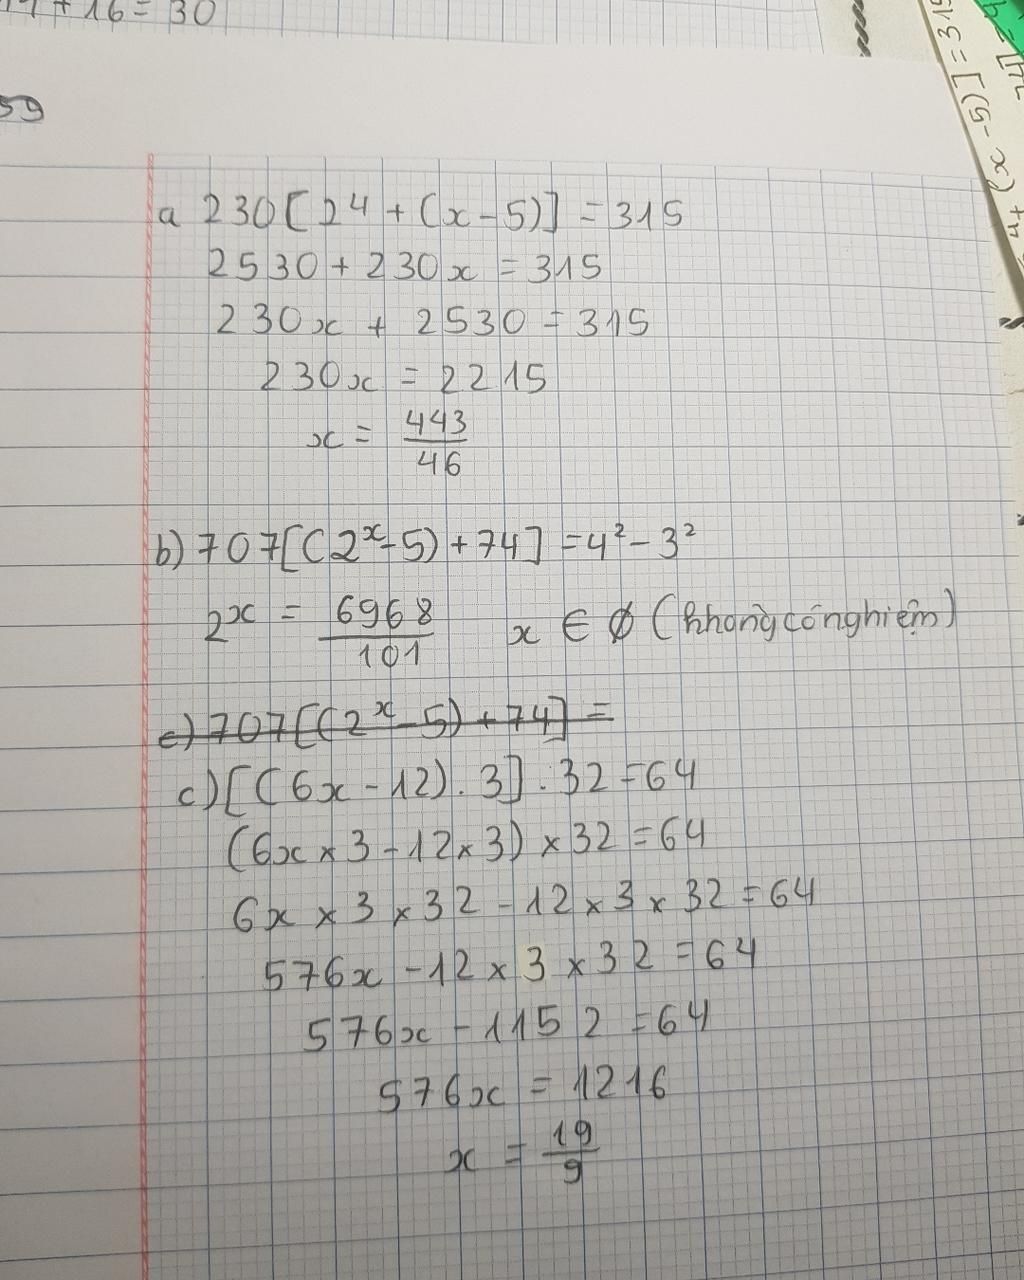 + 16 = 30
59
a 230[2⁴ + (x - 5)] = 315
2530 + 230x = 315
230x + 2530 = 315
230x = 2215
x = 443/46
b) 707[(2ˣ - 5) + 74] = 4² - 3²
2ˣ = 6968/101 x ∈ ∅ (không có nghiệm)
c) 707[(2ˣ - 5) + 74] =
c) [(6x - 12) . 3] . 32 = 64
(6x × 3 - 12 × 3) × 32 = 64
6x × 3 × 32 - 12 × 3 × 32 = 64
576x - 12 × 3 × 32 = 64
576x - 1152 = 64
576x = 1216
x = 19/9
+ (x - 5)] = 315